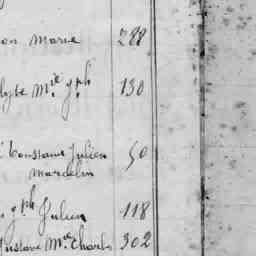 Marie 288
Mie jph 130
Constans Julien 50
Marcelin
jph Julien 118
Gustave Mie Charles 302